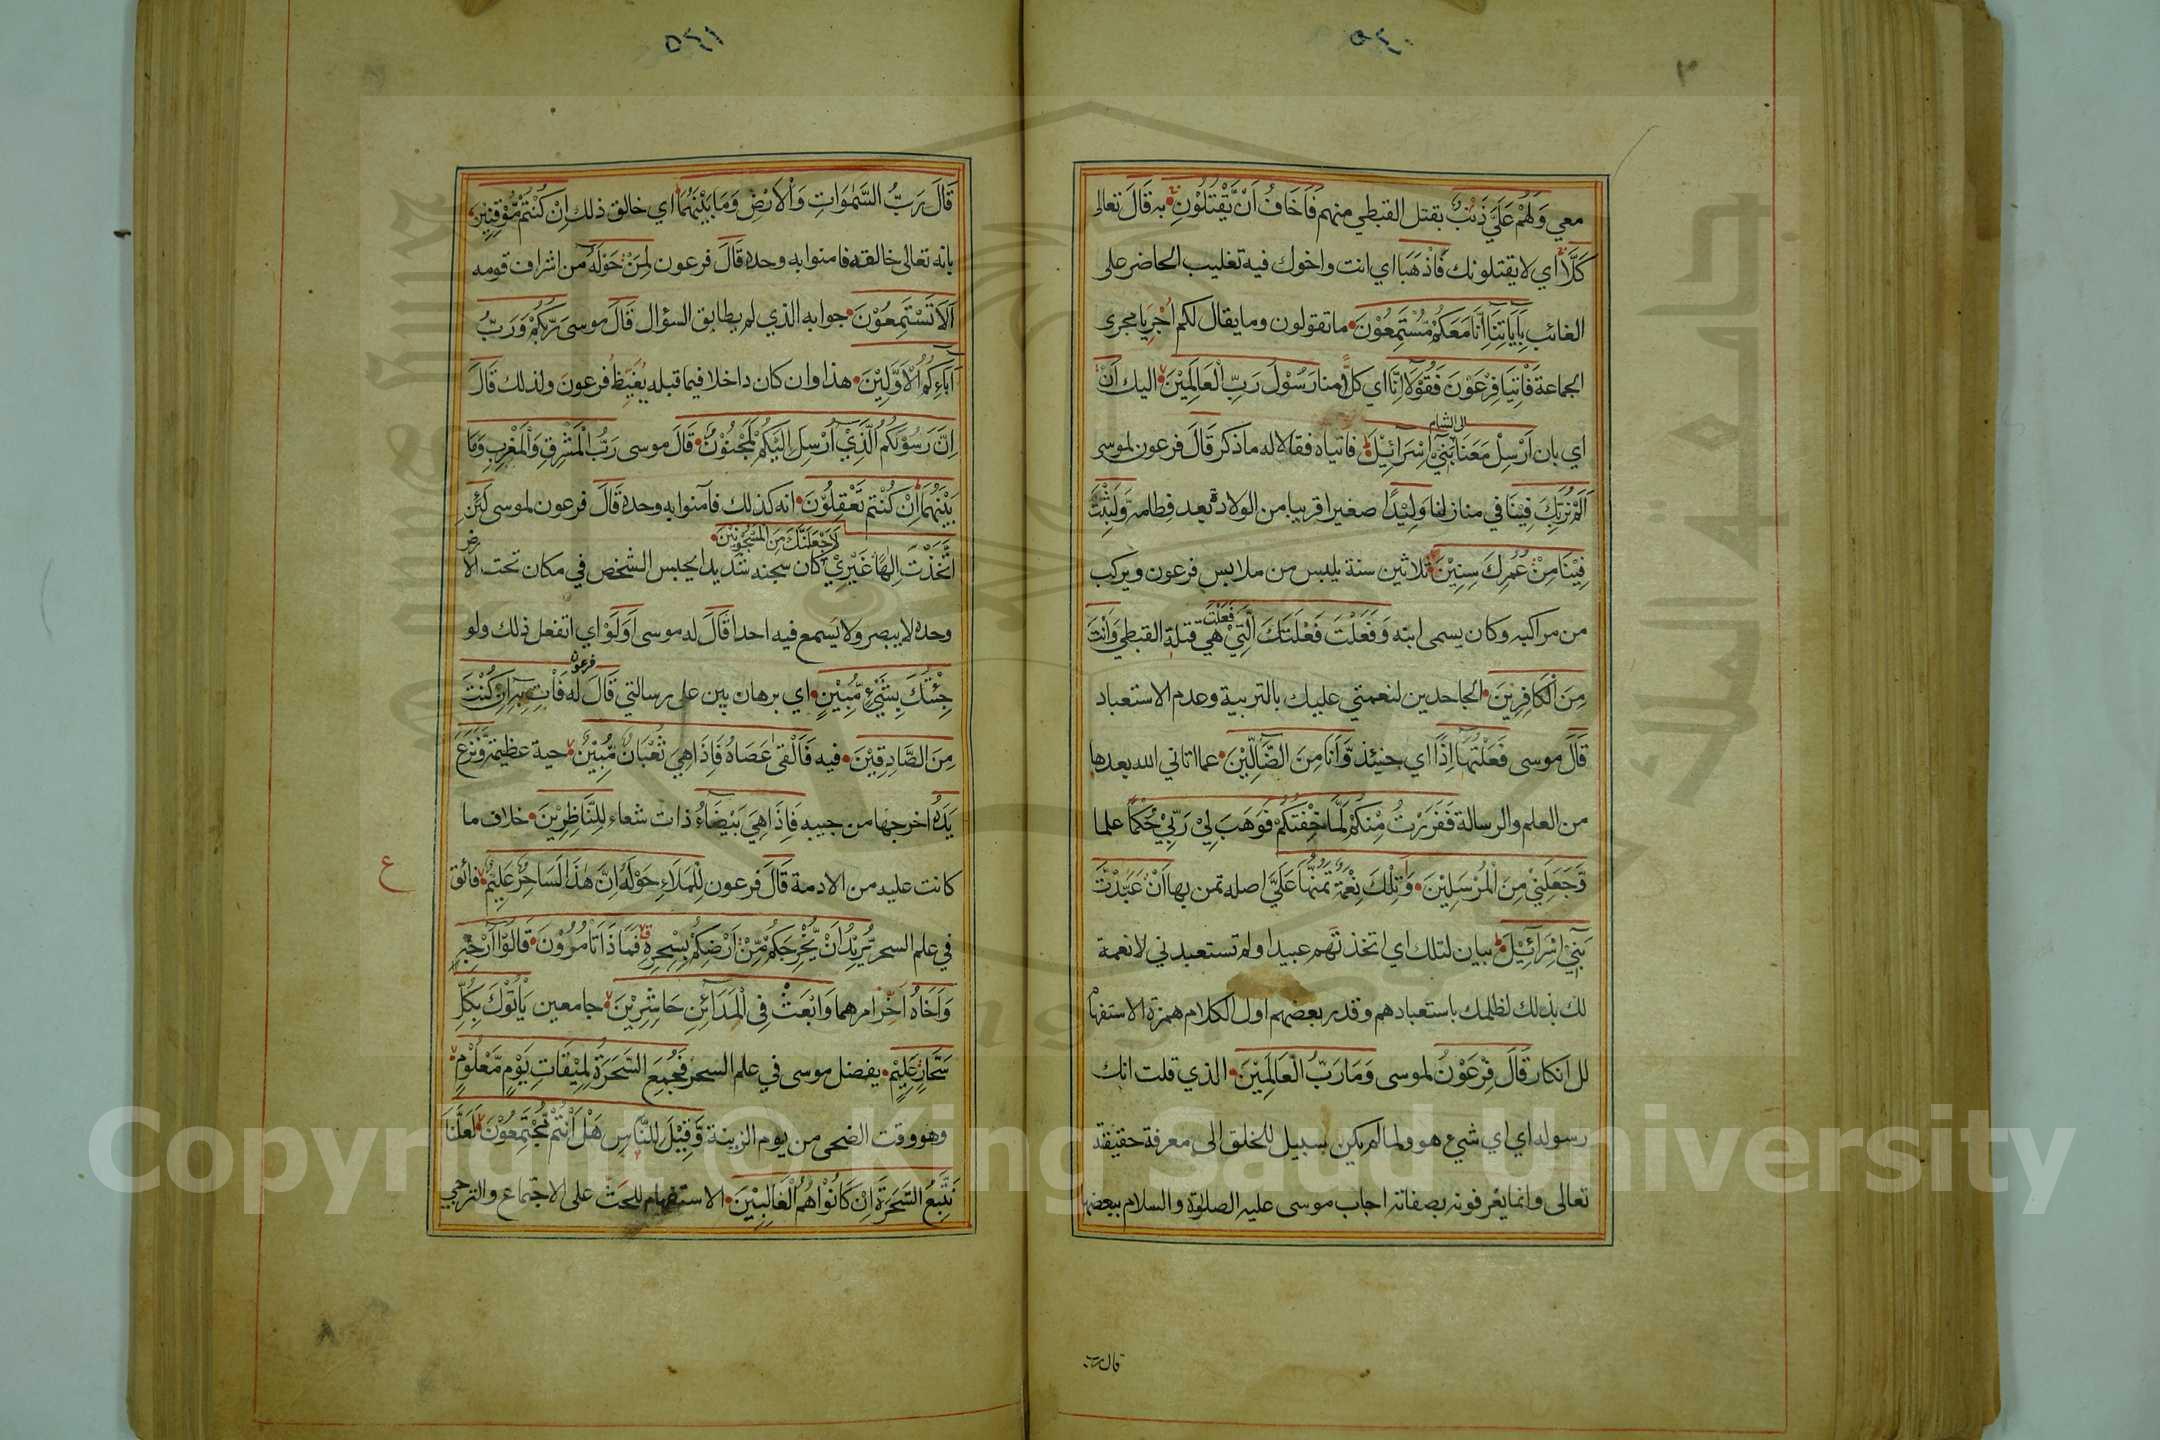 ٥٤٠
معي وَلَهُمْ عَلَيَّ ذَنْبٌ بقتل القبطي منهم فَاَخَافُ اَنْ يَّقْتُلُوْنِ به قَالَ تعالى
كَلَّا اي لا يقتلونك فَاذْهَبَا اي انت واخوك فيه تغليب الحاضر على
الغائب بِاٰيَاتِنَا اِنَّا مَعَكُمْ مُّسْتَمِعُوْنَ ما تقولون وما يقال لكم اُجْرِيا مجرى
الجماعة فَاْتِيَا فِرْعَوْنَ فَقُوْلَا اِنَّا اي كلًّا منا رَسُوْلُ رَبِّ الْعَالَمِيْنَ اليك اَنْ
اي بان اَرْسِلْ مَعَنَا بَنِيْ اِسْرَآئِيْلَ فاتياه فقالا له ما ذكر قَالَ فرعون لموسى
الى الشام
اَلَمْ نُرَبِّكَ فِيْنَا في منازلنا وَلِيْدًا صغيرا قريبا من الولادة بعد فطامه وَّلَبِثْتَ
فِيْنَا مِنْ عُمُرِكَ سِنِيْنَ ثلاثين سنة يلبس من ملابس فرعون ويركب
من مراكبه وكان يسمى ابنه وَفَعَلْتَ فَعْلَتَكَ الَّتِيْ هي قتلة القبطي وَاَنْتَ
فَعَلْتَ
مِنَ الْكَافِرِيْنَ الجاحدين لنعمتي عليك بالتربية وعدم الاستعباد
قَالَ موسى فَعَلْتُهَا اِذًا اي حينئذ وَّاَنَا مِنَ الضَّآلِّيْنَ عما اتاني الله بعدها
من العلم والرسالة فَفَرَرْتُ مِنْكُمْ لَمَّا خِفْتُكُمْ فَوَهَبَ لِيْ رَبِّيْ حُكْمًا علما
وَّجَعَلَنِيْ مِنَ الْمُرْسَلِيْنَ وَتِلْكَ نِعْمَةٌ تَمُنُّهَا عَلَيَّ اصله تمن بها اَنْ عَبَّدْتَّ
بَنِيْ اِسْرَآئِيْلَ بيان لتلك اي اتخذتهم عبيدا ولم تستعبدني لا نعمة
لك بذلك لظلمك باستعبادهم وقدر بعضهم اول الكلام همزة الاستفهام
للانكار قَالَ فِرْعَوْنُ لموسى وَمَا رَبُّ الْعَالَمِيْنَ الذي قلت انك
رسوله اي اي شيء هو ولما لم يكن سبيل للخلق الى معرفة حقيقته
تعالى وانما يعرفونه بصفاته اجاب موسى عليه الصلوة والسلام ببعضها
قال رب
٥٤١
قَالَ رَبُّ السَّمٰوَاتِ وَالْاَرْضِ وَمَا بَيْنَهُمَا اي خالق ذلك اِنْ كُنْتُمْ مُّوْقِنِيْنَ
بانه تعالى خالقه فامنوا به وحده قَالَ فرعون لِمَنْ حَوْلَهٗ من اشراف قومه
اَلَا تَسْتَمِعُوْنَ جوابه الذي لم يطابق السؤال قَالَ موسى رَبُّكُمْ وَرَبُّ
اٰبَآءِكُمُ الْاَوَّلِيْنَ هذا وان كان داخلا فيما قبله يُغِيْظ فرعون ولذلك قَالَ
اِنَّ رَسُوْلَكُمُ الَّذِيْ اُرْسِلَ اِلَيْكُمْ لَمَجْنُوْنٌ قَالَ موسى رَبُّ الْمَشْرِقِ وَالْمَغْرِبِ وَمَا
بَيْنَهُمَا اِنْ كُنْتُمْ تَعْقِلُوْنَ انه كذلك فآمنوا به وحده قَالَ فرعون لموسى لَئِنِ
لَاَجْعَلَنَّكَ مِنَ الْمَسْجُوْنِيْنَ
اتَّخَذْتَ اِلٰهًا غَيْرِيْ كان سجنه شديدا يحبس الشخص في مكان تحت الارض
وحده لا يبصر ولا يسمع فيه احدا قَالَ له موسى اَوَلَوْ اي اتفعل ذلك ولو
جِئْتُكَ بِشَيْءٍ مُّبِيْنٍ اي برهان بين على رسالتي قَالَ له فَاْتِ بِهٖ اِنْ كُنْتَ
فرعون
مِنَ الصَّادِقِيْنَ فيه فَاَلْقٰى عَصَاهُ فَاِذَا هِيَ ثُعْبَانٌ مُّبِيْنٌ حية عظيمة وَّنَزَعَ
يَدَهٗ اخرجها من جيبه فَاِذَا هِيَ بَيْضَآءُ ذات شعاء لِلنَّاظِرِيْنَ خلاف ما
كانت عليه من الادمة قَالَ فرعون لِلْمَلَاءِ حَوْلَهٗ اِنَّ هٰذَا لَسَاحِرٌ عَلِيْمٌ فائق
ع
في علم السحر يُّرِيْدُ اَنْ يُّخْرِجَكُمْ مِّنْ اَرْضِكُمْ بِسِحْرِهٖ فَمَاذَا تَاْمُرُوْنَ قَالُوْا اَرْجِهْ
وَاَخَاهُ اخّر امرهما وَابْعَثْ فِي الْمَدَآئِنِ حَاشِرِيْنَ جامعين يَاْتُوْكَ بِكُلِّ
سَحَّارٍ عَلِيْمٍ يفضل موسى في علم السحر فَجُمِعَ السَّحَرَةُ لِمِيْقَاتِ يَوْمٍ مَّعْلُوْمٍ
وهو وقت الضحى من يوم الزينة وَّقِيْلَ لِلنَّاسِ هَلْ اَنْتُمْ مُّجْتَمِعُوْنَ لَعَلَّنَا
نَتَّبِعُ السَّحَرَةَ اِنْ كَانُوْا هُمُ الْغَالِبِيْنَ الاستفهام للحث على الاجتماع والترجي
Copyright © King Saud University